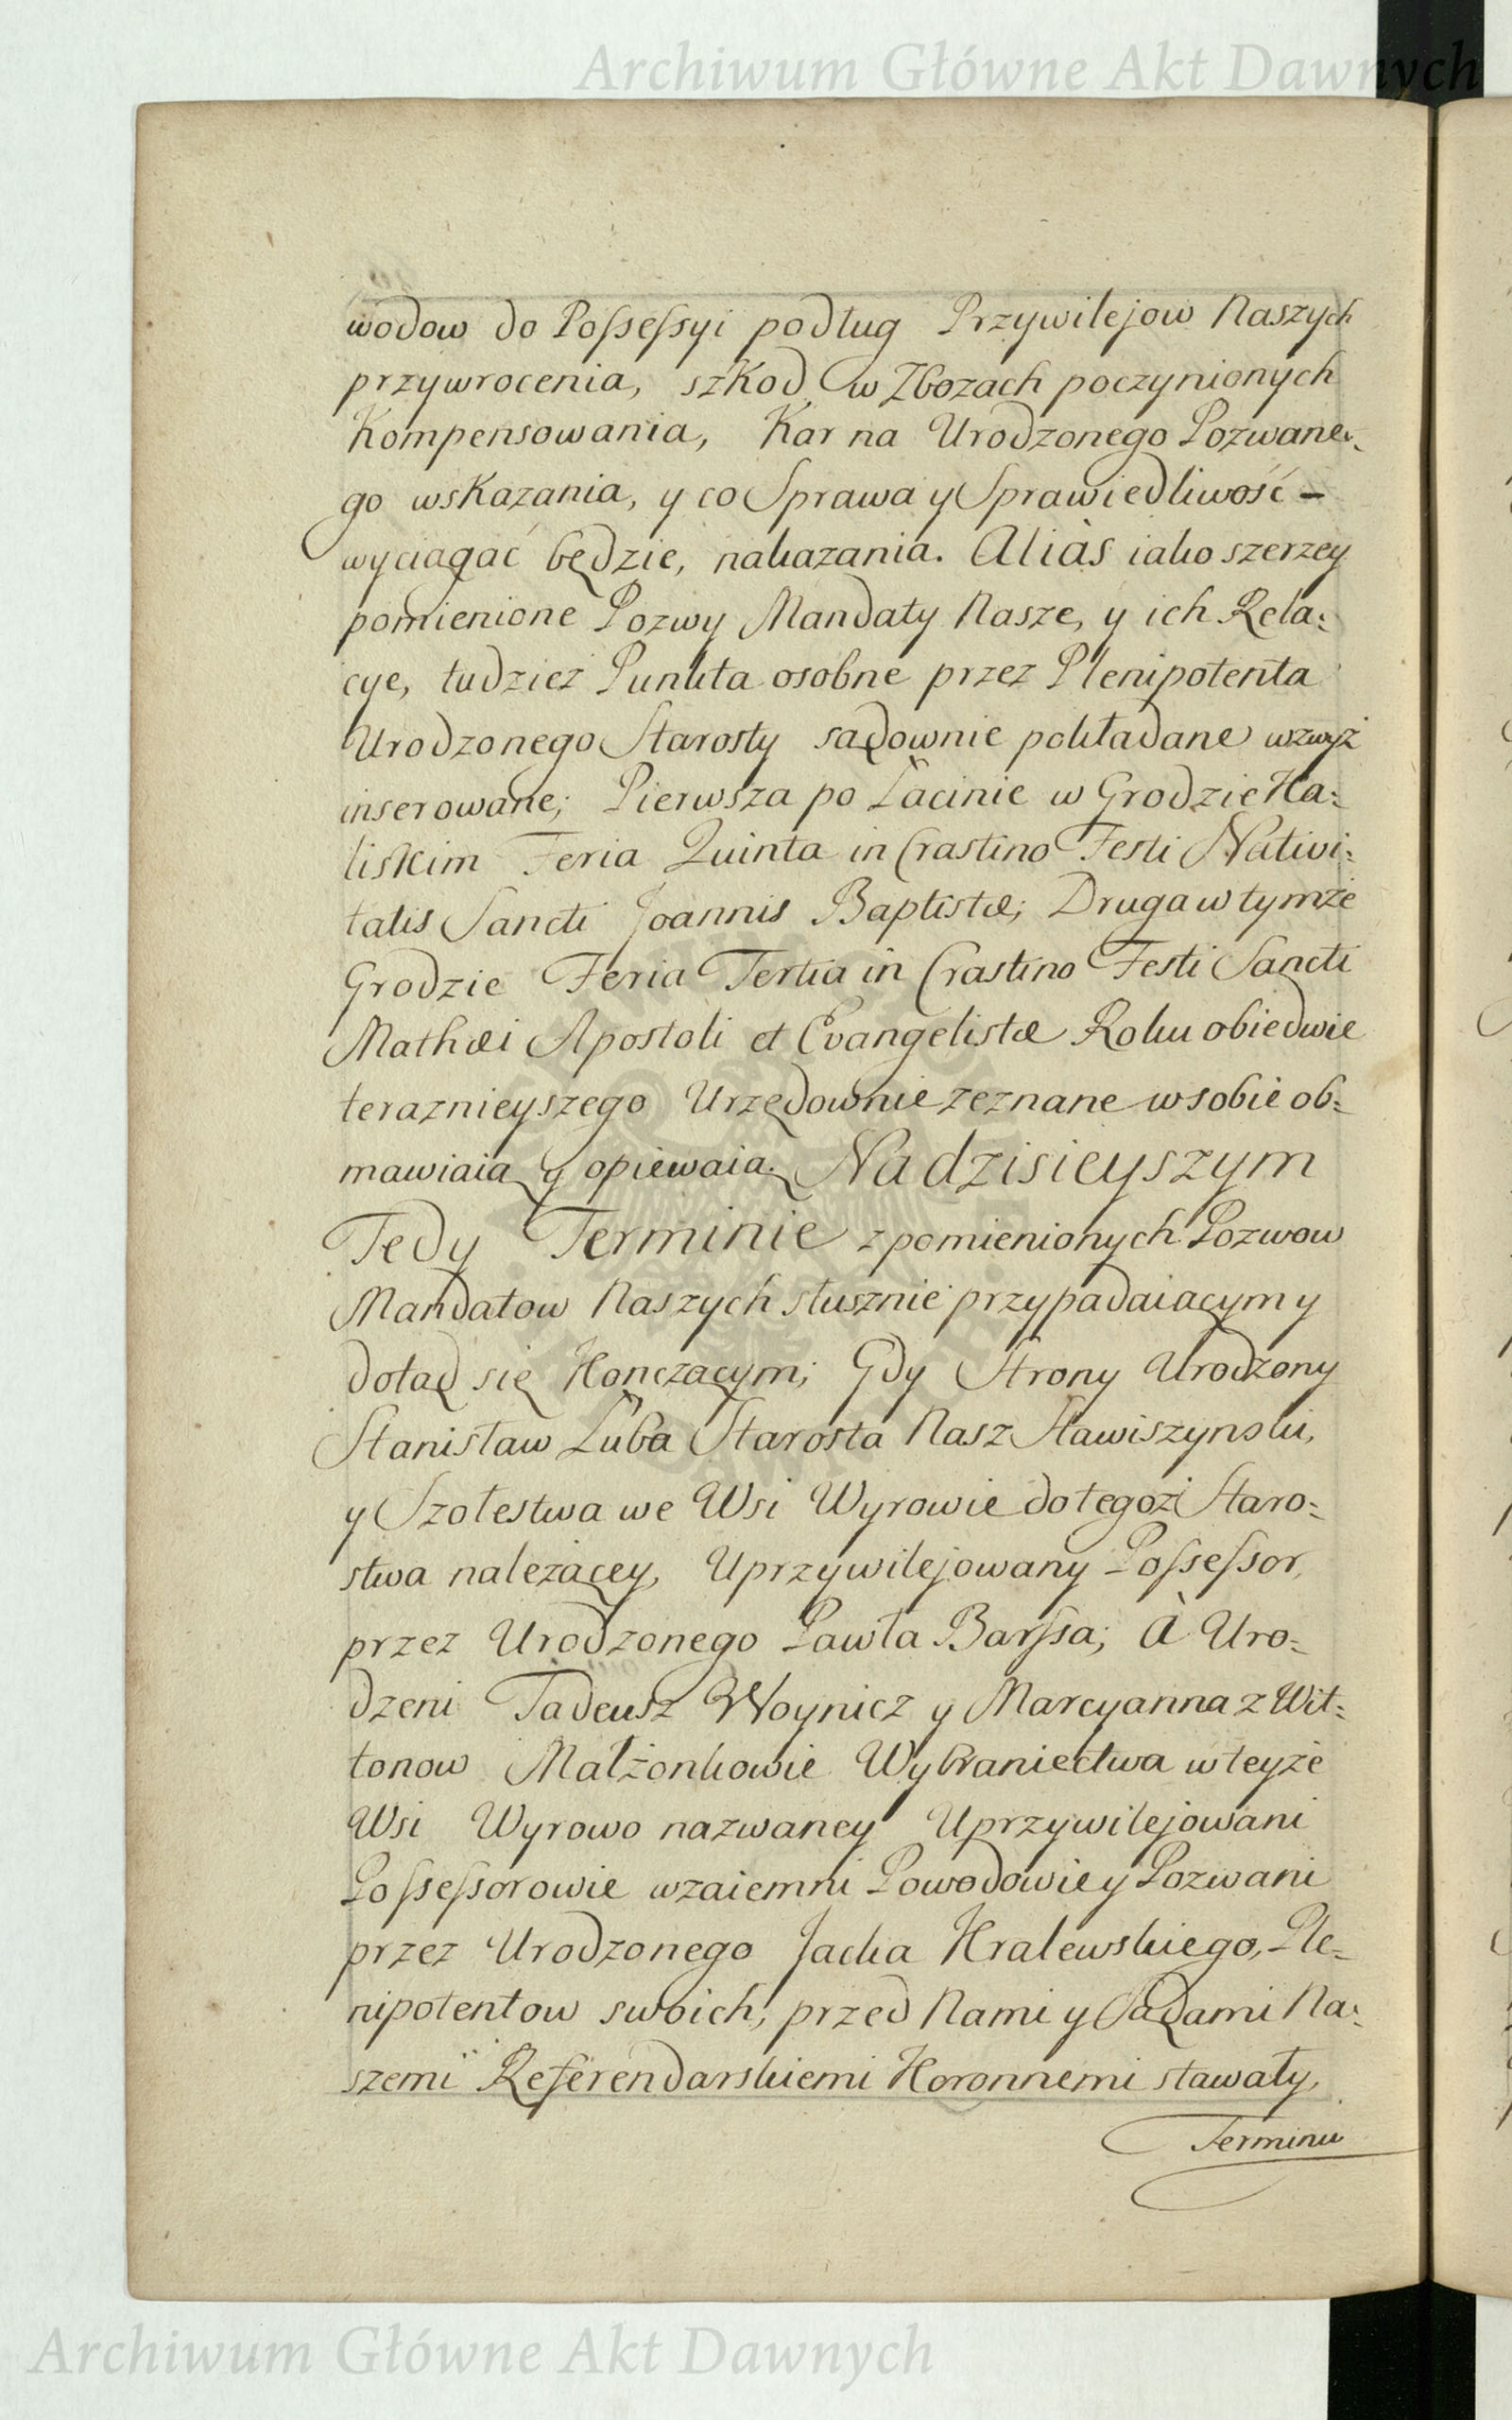 Archiwum Główne Akt Dawnych
wodow do Possessyi podług Przywilejow Naszych
przywrocenia, szkod w Zbozach poczynionych
Kompensowania, Kar na Urodzonego Pozwane-
go wskazania, y co Sprawa y Sprawiedliwość –
wyciągać będzie, nakazania. Aliàs iako szerzey
pomienione Pozwy Mandaty Nasze, y ich Rela:
cye, tudziez Punkta osobne przez Plenipotenta
Urodzonego Starosty sądownie pokładane wzwyż
inserowane; Pierwsza po Łacinie w Grodzie Ka:
liskim Feria Quinta in Crastino Festi Nativi:
tatis Sancti Joannis Baptistæ; Druga w tymże
Grodzie Feria Tertia in Crastino Festi Sancti
Mathæi Apostoli et Evangelistæ Roku obiedwie
teraznieyszego Urzędownie zeznane w sobie ob:
mawiaią y opiewaią. Na dzisieyszym
Tedy Terminie z pomienionych Pozwow
Mandatow Naszych słusznie przypadaiącym y
dotąd się Konczącym; Gdy Strony Urodzony
Stanisław Łuba Starosta Nasz Stawiszynski,
y Szołestwa we Wsi Wyrowie do tegoż Staro:
stwa należącey, Uprzywilejowany Possessor,
przez Urodzonego Pawła Barssa; à Uro:
dzeni Tadeusz Woynicz y Marcyanna z Wit:
tonow Małżonkowie Wybraniectwa w teyże
Wsi Wyrowo nazwaney Uprzywilejowani
Possessorowie wzaiemni Powodowie y Pozwani
przez Urodzonego Jacka Kralewskiego, Ple-
nipotentow swoich, przed Nami y Sądami Na:
szemi Referendarskiemi Koronnemi stawały,
Terminu
Archiwum Główne Akt Dawnych